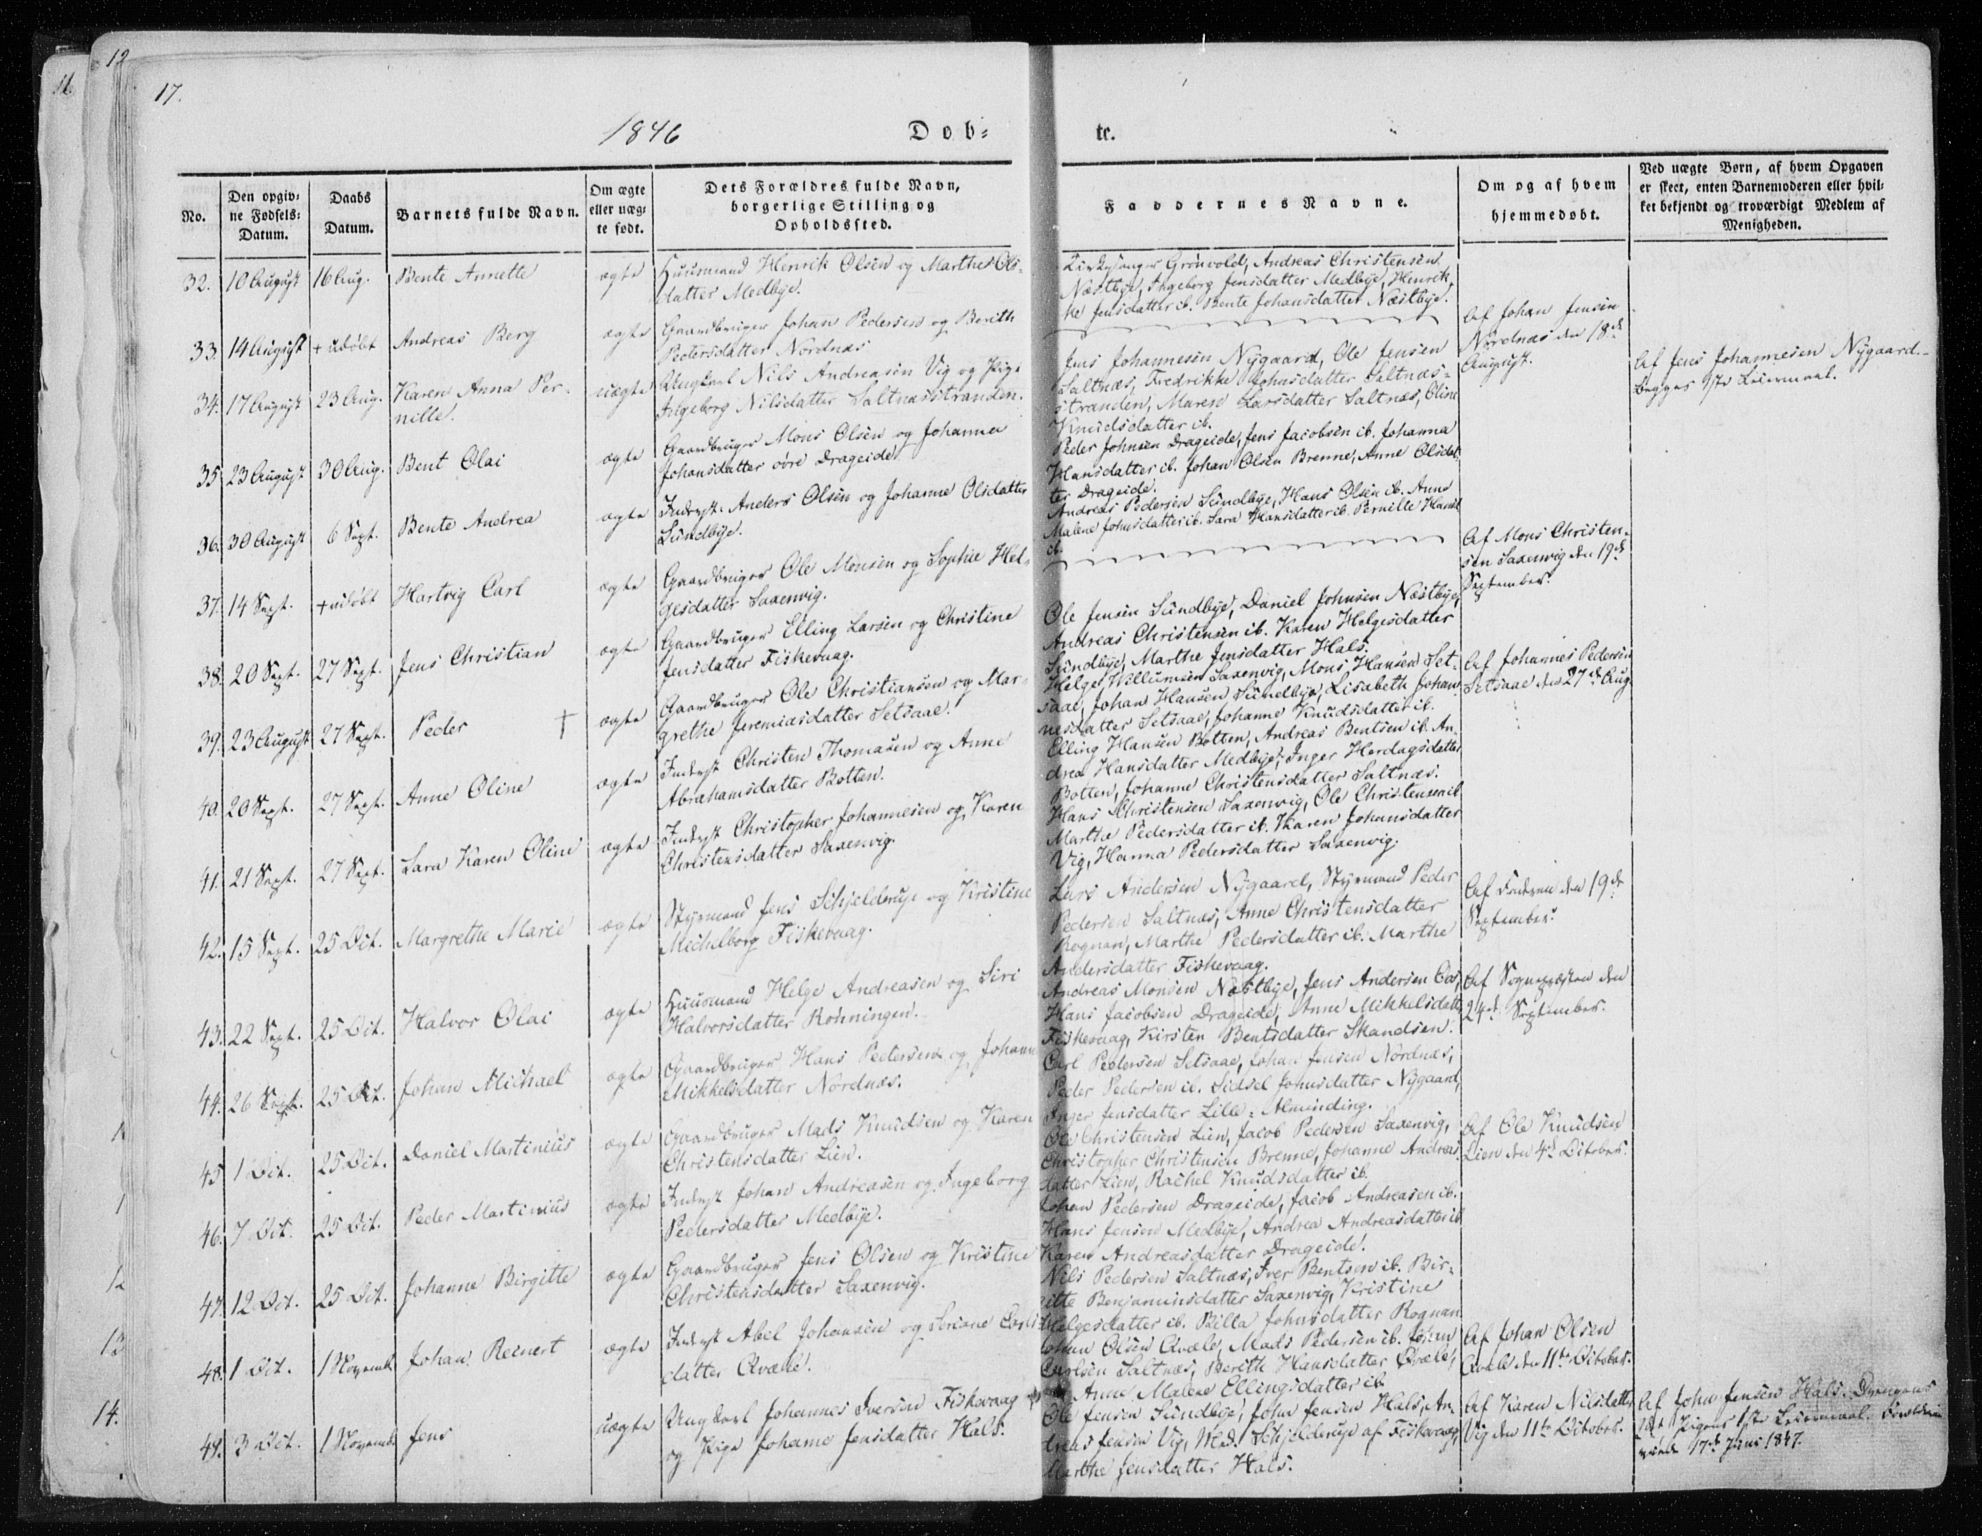 12
11.
17.
1846
Dob=
te.
No.
Den opgiv=
ne Fødsels=
Datum.
Daabs
Datum.
Barnets fulde Navn.
Om ægte
eller uæg=
te født.
Dets Forældres fulde Navn,
borgerlige Stilling og
Opholdssted.
Faddernes Navne.
Om og af hvem
hjemmedøbt.
Ved uægte Børn, af hvem Opgaven
er skeet, enten Barnemoderen eller hvil=
ket bekjendt og troværdigt Medlem af
Menigheden.
32. 10 August 16 Aug. Bente Annette ægte Huusmand Henrik Olsen og Marthe Ols-
datter Medbye.
Grønvold, Andreas Christensen
Næstbye, Ingeborg Jensdatter Medbye, Henrik-
ke Jensdatter ib. Bente Johansdatter Næstbye.
33. 14 August + udøbt Andreas Berg ægte Gaardbruger Johan Pedersen og Berith
Pedersdatter Nordnæs
Af Johan Jensen
Nordnæs den 18de
August.
34. 17 August 23 Aug. Karen Anna Per-
nille.
uægte Ungkarl Nils Andreasen Vig og Pige
Ingeborg Nilsdatter Saltnæsstranden.
Jens Johannesen Nygaard, Ole Jensen
Saltnæs, Fredrikke Johnsdatter Saltnæs-
stranden, Maren Larsdatter Saltnæs, Oline
Knudsdatter ib.
Af Jens Johannesen Nygaard.-
begges 1ste Leiermaal.
35. 23 August 30 Aug. Bent Olai ægte Gaardbruger Mons Olsen og Johanna
Johansdatter øvre Drageide
Peder Johnsen Drageide, Jens Jacobsen ib. Johanna
Hansdatter ib. Johan Olsen Brenne, Anne Olsdat-
ter Drageide.
36. 30 August 6 Sept. Bente Andrea ægte Inderst. Anders Olsen og Johanne Olsdatter
Sundbye.
Andreas Pedersen Sundbye, Hans Olsen ib. Anne
Malene Johnsdatter ib. Sara Hansdatter ib. Pernille Hansd.
ib.
37. 14 Sept. + udøbt Hartvig Carl ægte Gaardbruger Ole Monsen og Sophie Hel-
gesdatter Saxenvig.
Af Mons Christen-
sen Saxenvig den 19de
September.
38. 20 Sept. 27 Sept. Jens Christian ægte Gaardbruger Elling Larsen og Christine
Jensdatter Fiskevaag.
Ole Jensen Sundbye, Daniel Johnsen Næstbye,
Andreas Christensen ib. Karen Helgesdatter
Sundbye, Marthe Jensdatter Hals.
39. 23 August 27 Sept. Peder † ægte Gaardbruger Ole Christiansen og Mar-
grethe Jeremiasdatter Setsaae.
Helge Willumsen Saxenvig, Mons Hansen Set-
saae, Johan Hansen Sundbye, Lisabeth Johan-
nesdatter Setsaae, Johanne Knudsdatter ib.
Af Johannes Pedersen
Setsaae den 27de Aug.
40. 20 Sept. 27 Sept. Anne Oline ægte Inderst Christen Thomasen og Anne
Abrahamsdatter Botten.
Elling Hansen Botten, Andreas Bentsen ib. An-
drea Hansdatter Medbye, Inger Herdagsdatter
Botten, Johanne Christensdatter Saltnæs.
41. 21 Sept. 27 Sept. Lara Karen Oline ægte Inderst Christopher Johannesen og Karen
Christensdatter Saxenvig.
Hans Christensen Saxenvig, Ole Christensen ib.
Marthe Pedersdatter ib. Karen Johansdatter
Vig, Hanna Pedersdatter Saxenvig.
42. 15 Sept. 25 Oct. Margrethe Marie ægte Styrmand Jens Schjelderup og Kristine
Michelborg Fiskevaag.
Lars Andersen Nygaard, Styrmand Peder
Pedersen Saltnæs, Anne Christensdatter
Rognan, Marthe Pedersdatter ib. Marthe
Andersdatter Fiskevaag.
Af Faderen den 19de
September.
43. 22 Sept. 25 Oct. Halvor Olai ægte Huusmand Helge Andreasen og Siri
Halvorsdatter Rohningen.
Andreas Monsen Næstbye, Jens Andersen
Hans Jacobsen Drageide, Anne Mikkelsdatt.
Fiskevaag, Kirsten Bentsdatter Skandsen.
Af Sognepræsten den
24de September.
44. 26 Sept. 25 Oct. Johan Michael ægte Gaardbruger Hans Pedersen og Johanne
Mikkelsdatter Nordnæs.
Carl Pedersen Setsaae, Johan Jensen Nordnæs,
Peder Pedersen ib. Sidsel Johnsdatter Nygaard,
Inger Jensdatter Lille-Alminding.
45 1 Oct. 25 Oct. Daniel Martinius ægte Gaardbruger Mads Knudsen og Karen
Christensdatter Lien.
Ole Christensen Lien, Jacob Pedersen Saxenvig,
Christopher Christensen Brenne, Johanne Andreas-
datter Lien, Rachel Knudsdatter ib.
Af Ole Knudsen
Lien den 4de October.
46. 7 Oct. 25 Oct. Peder Martinius ægte Inderst Johan Andreasen og Ingeborg
Pedersdatter Medbye.
Johan Pedersen Drageide, Jacob Andreasen ib.
Hans Jensen Medbye, Andrea Andreasdatter ib.
Karen Andreasdatter Drageide.
47. 12 Oct. 25 Oct. Johanne Birgitte ægte Gaardbruger Jens Olsen og Kristine
Christensdatter Saxenvig.
Nils Pedersen Saltnæs, Iver Bentsen ib. Bir-
gitte Benjaminsdatter Saxenvig, Kristine
Helgesdatter ib. Billa Johnsdatter Rognan
48. 1 Oct. 1 Novemb. Johan Reinert ægte Inderst Abel Johansen og Seriane Carls-
datter Qvæle.
Johan Olsen Qvæle, Mads Pedersen ib. Johan
Carlsen Saltnæs, Berith Hansdatter Qvæle,
Anne Malene Ellingsdatter ib.
Af Johan Olsen
Qvæle den 11te October.
49. 3 Oct. 1 Novemb. Jens uægte Ungkarl Johannes Iversen Fiskevaag
og Pige Johanne Jensdatter Hals.
Ole Jensen Sundbye, John Jensen Hals, An-
dreas Jensen Vig, Mad. Schjelderup af Fiskevaag,
Marthe Jensdatter Hals.
Af Karen Nilsdatter
Vig den 11te October.
Af John Jensen Hals. Drengens
1ste, Pigens 1ste Leiermaal.
17de Juni 1847.
14.